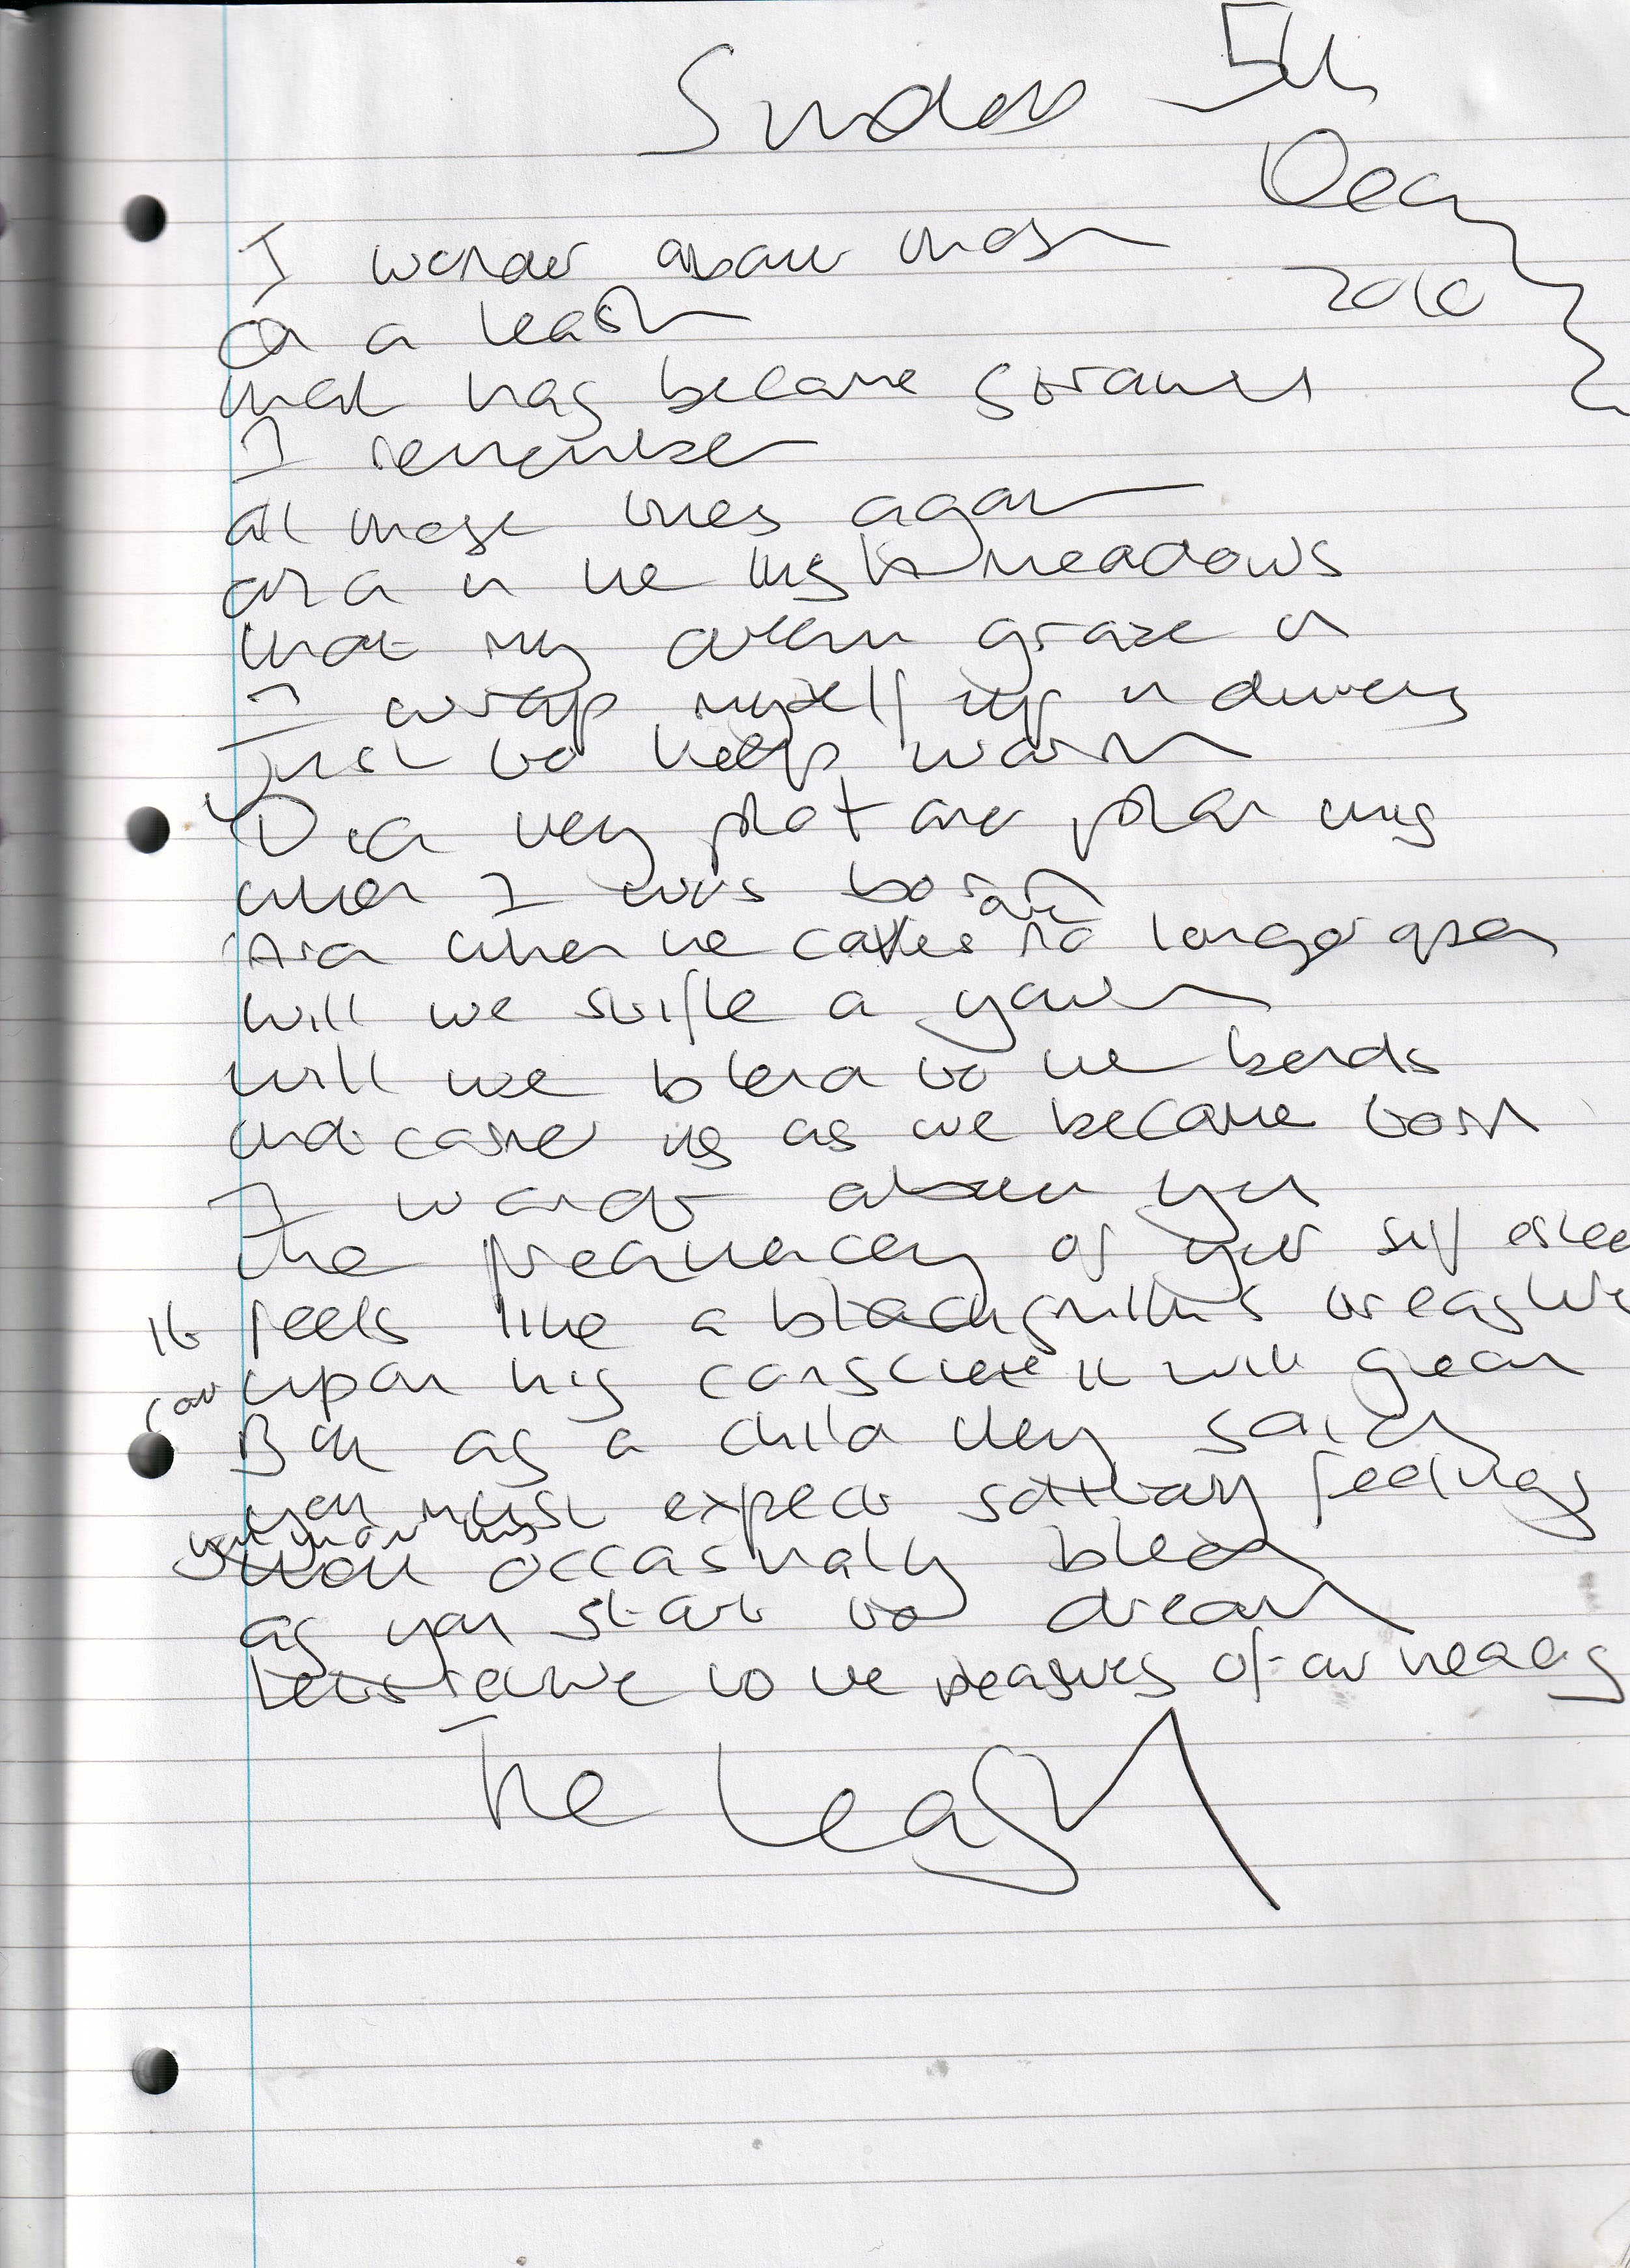 Sunday 5th
Dec
2010
I wonder about those
on a leash
that has become
I remember
all those times again
and in the lush meadows
that my dream graze on
I wrap myself up in duvets
Just to keep warm
Did they plot and plan this
when I was born
And when the are no longer open
will we stifle a yawn
will we blend to the bends
that us as we become torn
I wonder about you
The frequency of your self
It feels like a blacksmiths
upon his it will gleam
But as a child they said
you must expect solitary feelings
you know this
occasionaly bleed
as you start to dream
to the pleasures of our needs
The Leash